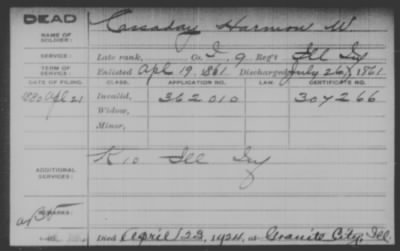 DEAD
NAME OF SOLDIER: Cassaday Harmon W.
SERVICE: Late rank, Co. I, 9 Reg't Ill Inf
TERM OF SERVICE: Enlisted Apl 19 1861 Discharged July 26, 1861
DATE OF FILING. CLASS. APPLICATION NO. LAW. CERTIFICATE NO.
1880 Apl 21 Invalid, 362010 307266
Widow,
Minor,
ADDITIONAL SERVICES: K 10 Ill Inf
REMARKS:
Died April 23, 1924, at Granite City, Ill.